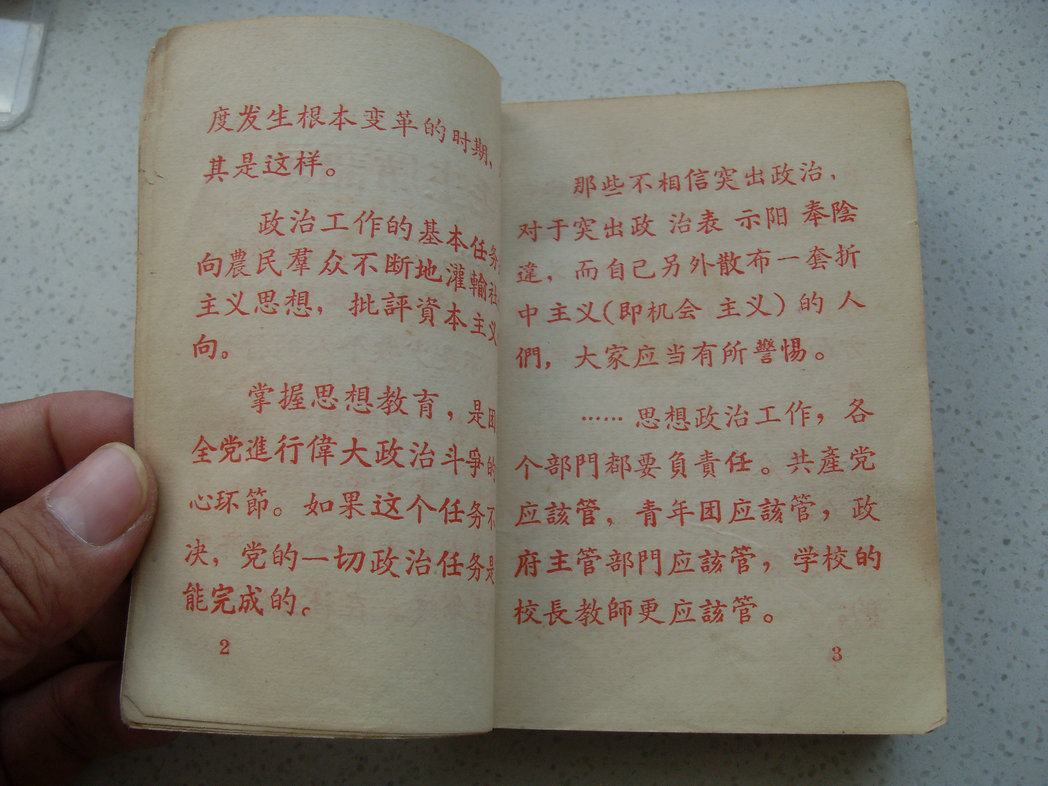 度发生根本变革的时期、
其是这样。
政治工作的基本任务
向農民羣众不断地灌輸社
主义思想，批評資本主义
向。
掌握思想教育，是团
全党進行偉大政治斗爭的
心环節。如果这个任务不
决，党的一切政治任务是
能完成的。
2
那些不相信突出政治，
对于突出政治表示阳奉陰
違，而自己另外散布一套折
中主义(即机会主义)的人
們，大家应当有所警惕。
……思想政治工作，各
个部門都要負責任。共產党
应該管，青年团应該管，政
府主管部門应該管，学校的
校長教師更应該管。
3